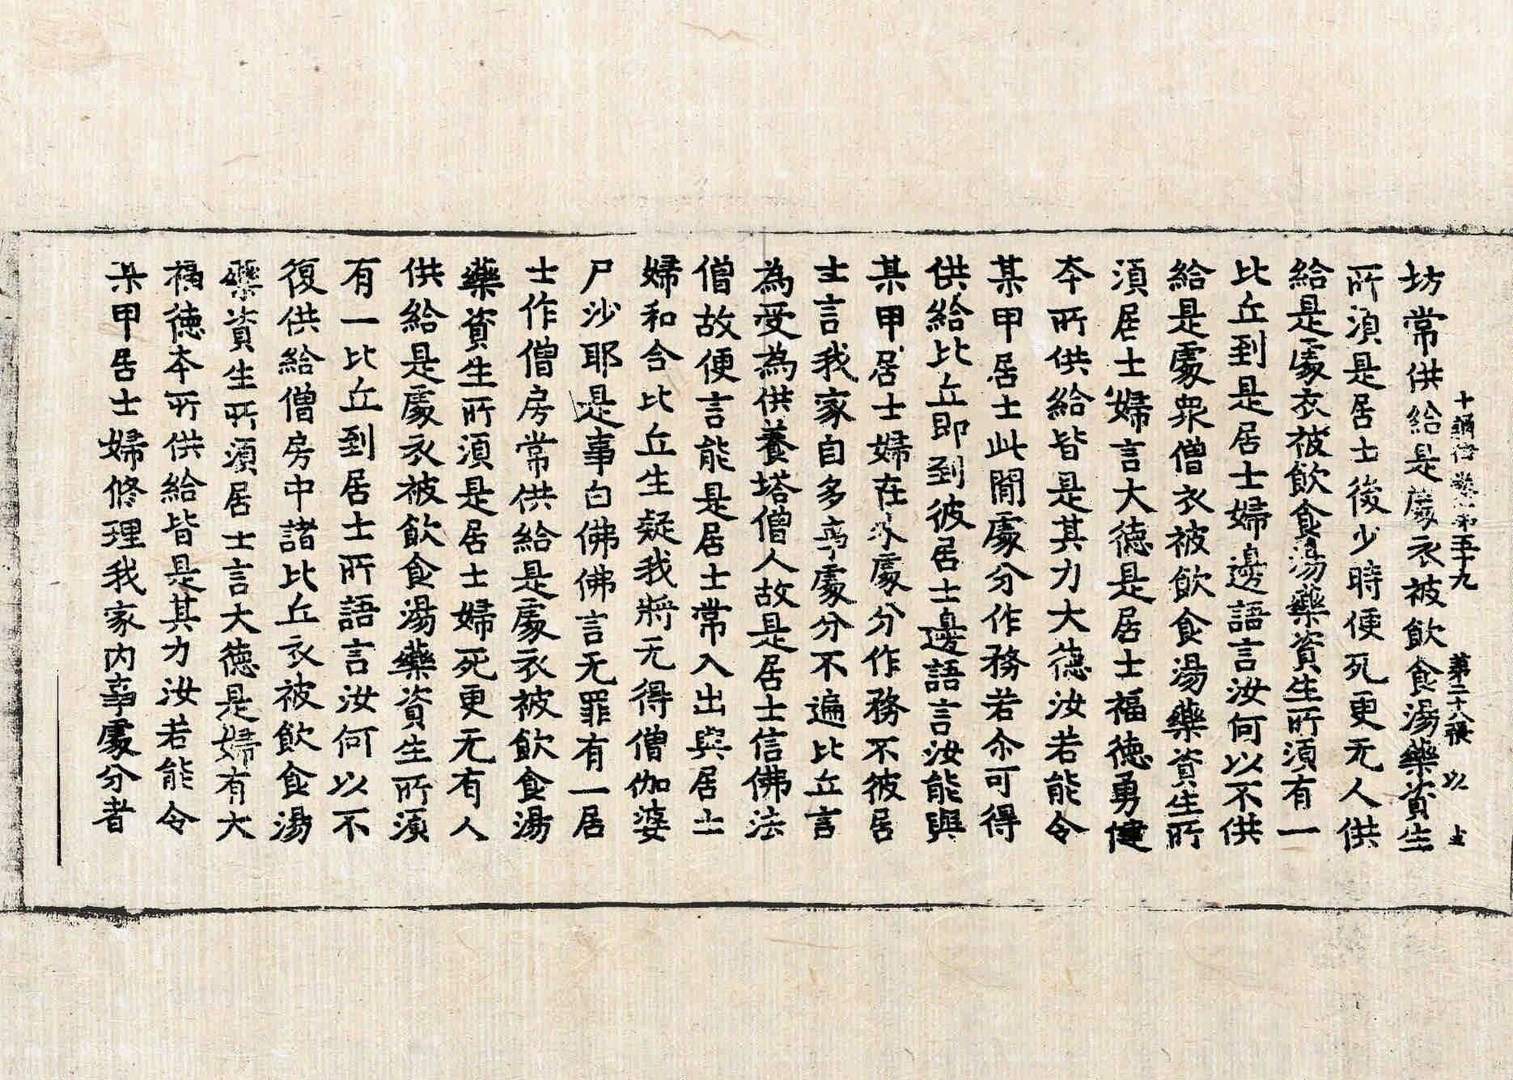 十誦律卷第五十九 第二十八張 以 圭
坊常供給是處衣被飲食湯藥資生
所湏是居士後少時便死更无人供
給是處衣被飲食湯藥資生所湏有一
比丘到是居士婦邊語言汝何以不供
給是處衆僧衣被飲食湯藥資生所
湏居士婦言大德是居士福德勇健
夲所供給皆是其力大德汝若能令
某甲居士此間處分作務若尒可得
供給比丘即到彼居士邊語言汝能與
某甲居士婦在此處分作務不彼居
士言我家自多事處分不遍比丘言
為受為供養塔僧人故是居士信佛法
僧故便言能是居士常入出與居士
婦和合比丘生疑我將无得僧伽婆
尸沙耶是事白佛佛言无罪有一居
士作僧房常供給是處衣被飲食湯
藥資生所湏是居士婦死更无有人
供給是處衣被飲食湯藥資生所湏
有一比丘到居士所語言汝何以不
復供給僧房中諸比丘衣被飲食湯
藥資生所湏居士言大德是婦有大
福德夲所供給皆是其力汝若能令
某甲居士婦修理我家內事處分者